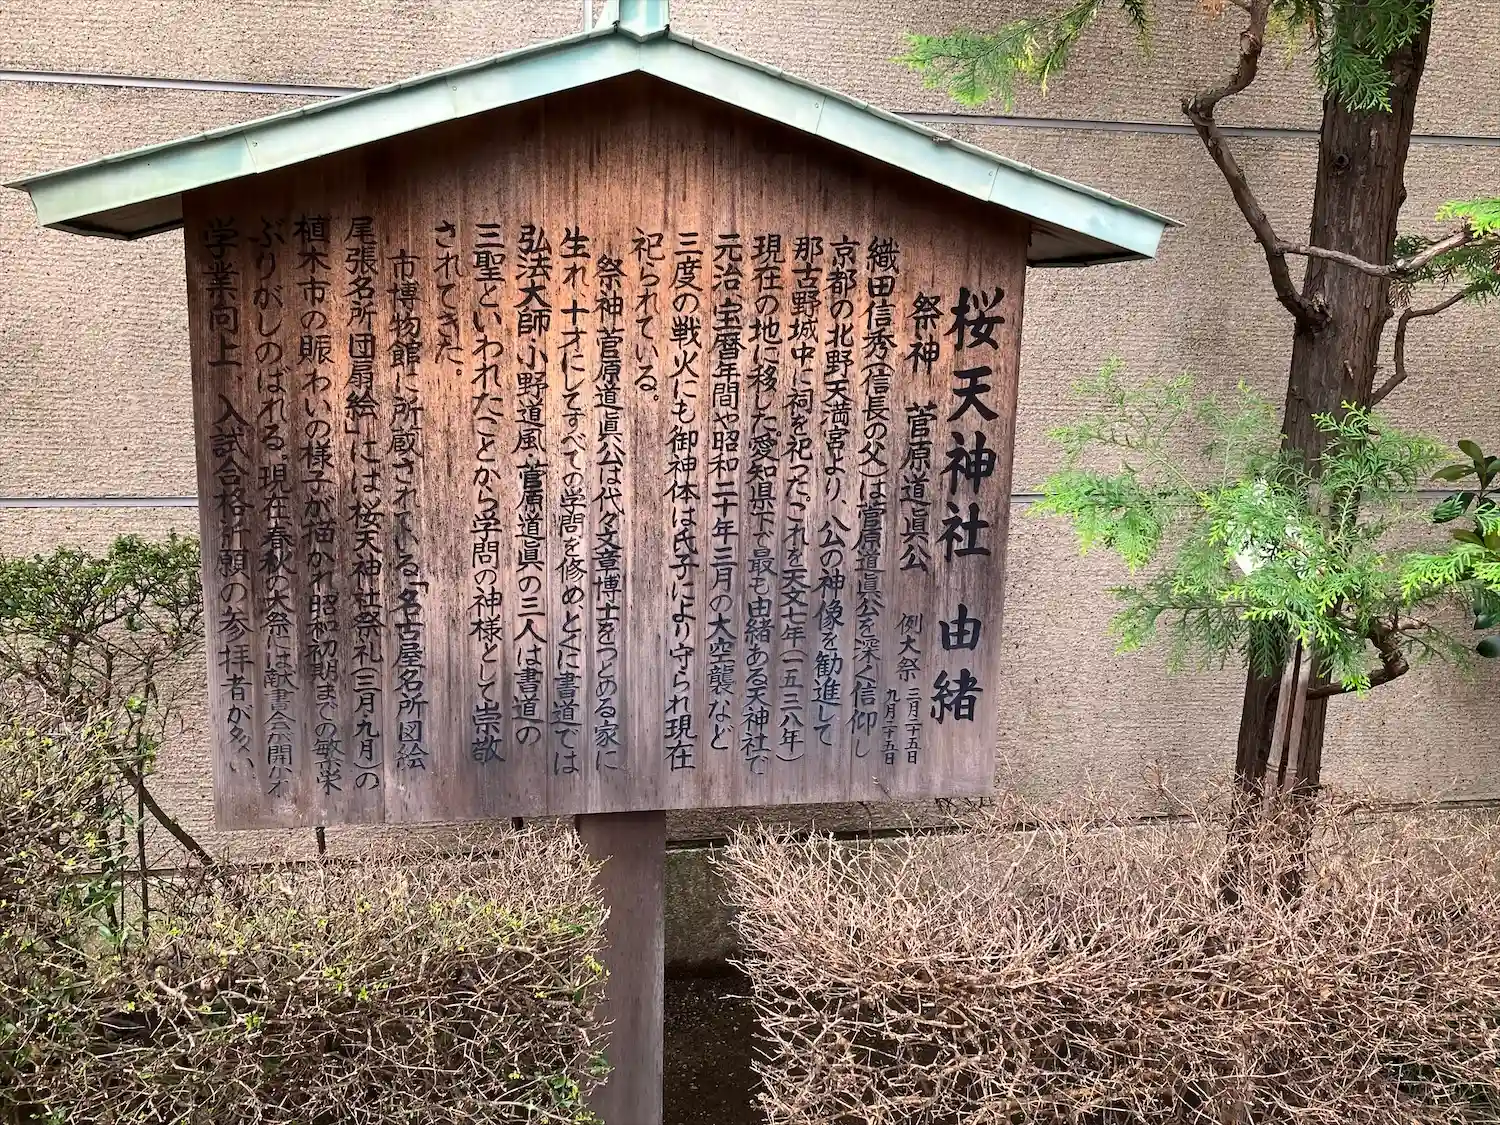 桜天神社 由緒
祭神 菅原道眞公 例大祭 三月二十五日
九月二十五日
織田信秀(信長の父)は菅原道眞公を深く信仰し
京都の北野天満宮より、公の神像を勧進して
那古野城中に祠を祀った。これを天文七年(一五三八年)
現在の地に移した。愛知県下で最も由緒ある天神社で
元治・宝暦年間や昭和二十年三月の大空襲など
三度の戦火にも御神体は氏子により守られ現在
祀られている。
祭神 菅原道眞公は代々文章博士をつとめる家に
生れ、十才にしてすべての学問を修め、とくに書道では
弘法大師・小野道風・菅原道眞の三人は書道の
三聖といわれたことから学問の神様として崇敬
されてきた。
市博物館に所蔵されている「名古屋名所図絵
尾張名所団扇絵」には桜天神社祭礼(三月・九月)の
植木市の賑わいの様子が描かれ昭和初期までの繁栄
ぶりがしのばれる。現在春秋の大祭には献書会が開かれ
学業向上、入試合格祈願の参拝者が多い